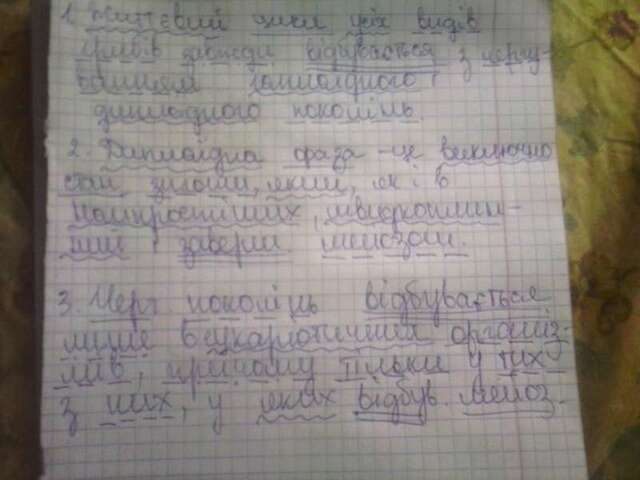 1. Життєвий цикл усіх видів
грибів завжди відбувається з чергу-
ванням гаплоїдного і
диплоїдного поколінь.
2. Диплоїдна фаза - це виключно
стан зиготи, який, як і в
найпростіших, швидкоплин-
ний і заверш. мейозом.
3. Черг поколінь відбувається
лише в еукаріотичних організ-
мів, причому тільки у тих
з них, у яких відбув. мейоз.